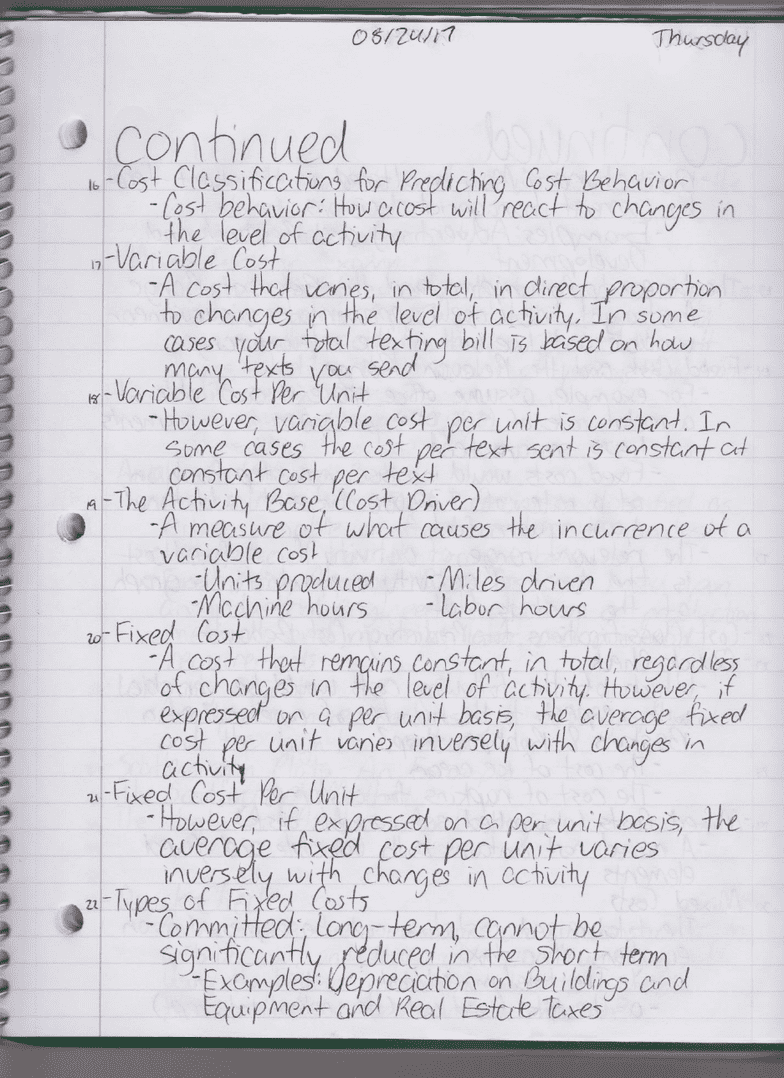 08/24/17 Thursday
Continued
16 -Cost Classifications for Predicting Cost Behavior
-Cost behavior: How a cost will react to changes in
the level of activity
17 -Variable Cost
-A cost that varies, in total, in direct proportion
to changes in the level of activity. In some
cases your total texting bill is based on how
many texts you send
18 -Variable Cost Per Unit
-However, variable cost per unit is constant. In
some cases the cost per text sent is constant at
constant cost per text
19 -The Activity Base (Cost Driver)
-A measure of what causes the incurrence of a
variable cost
-Units produced -Miles driven
-Machine hours -Labor hours
20 -Fixed Cost
-A cost that remains constant, in total, regardless
of changes in the level of activity. However, if
expressed on a per unit basis, the average fixed
cost per unit varies inversely with changes in
activity
21 -Fixed Cost Per Unit
-However, if expressed on a per unit basis, the
average fixed cost per unit varies
inversely with changes in activity
22 -Types of Fixed Costs
-Committed: Long-term, cannot be
significantly reduced in the short term
-Examples: Depreciation on Buildings and
Equipment and Real Estate Taxes